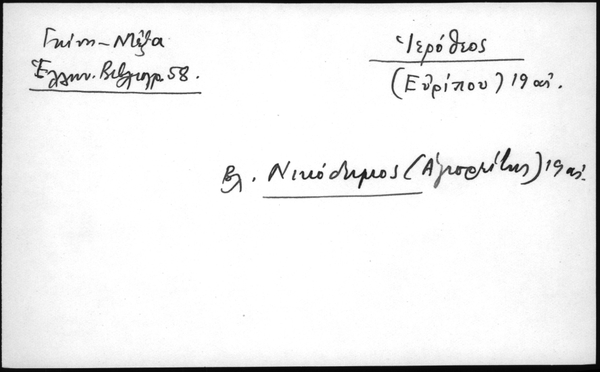 Γκίνη-Μέξα
Ἑλλην. Βιβλιογρ. 58.
Ἱερόθεος
(Εὐρίπου) 19 αἰ.
Βλ. Νικόδημος (Ἁγιορείτης) 19 αἰ.